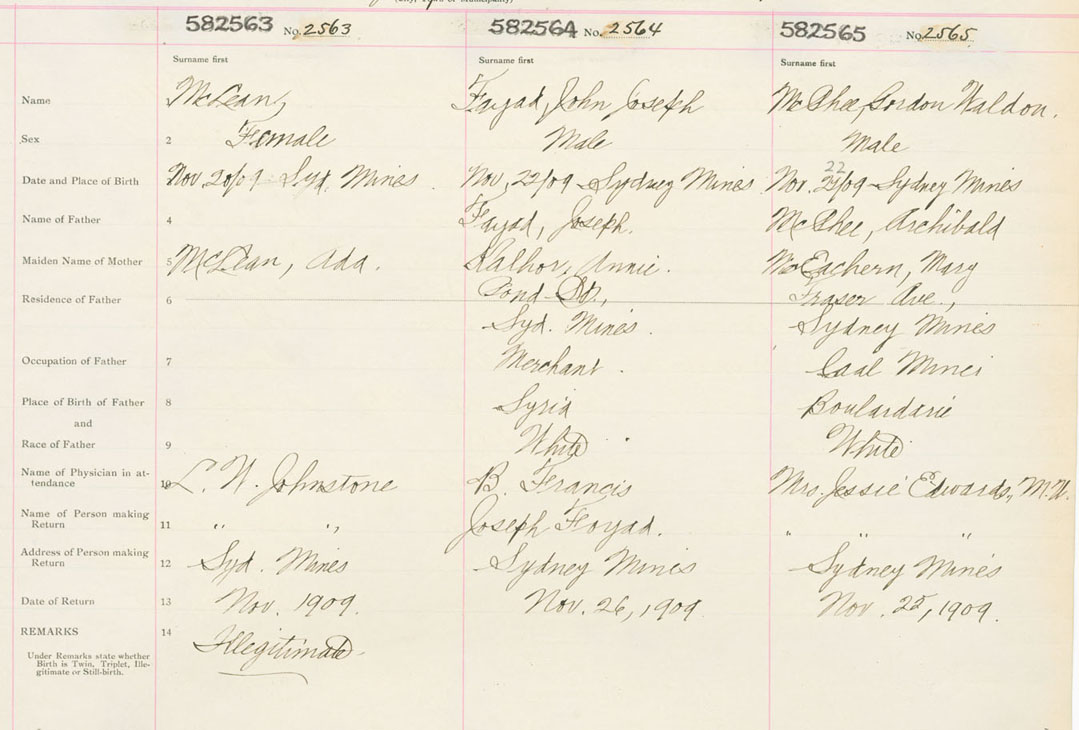 (City, Town or Municipality)
582563 No. 2563 582564 No. 2564 582565 No. 2565
Surname first Surname first Surname first
Name McLean, Fayad, John Joseph McPhee, Gordon Waldon.
Sex 2 Female Male Male
Date and Place of Birth Nov 20/09 Syd. Mines Nov, 22/09 - Sydney Mines Nov. 22/09 - Sydney Mines
Name of Father 4 Fayad, Joseph. McPhee, Archibald
Maiden Name of Mother 5 McLean, Ada. Kalhor, Annie. McEachern, Mary
Residence of Father 6 Pond St., Fraser Ave.,
Syd. Mines. Sydney Mines
Occupation of Father 7 Merchant. Coal Miner
Place of Birth of Father 8 Syria Boulardarie
and
Race of Father 9 White White
Name of Physician in at-
tendance 10 L. W. Johnstone B. Francis Mrs. Jessie Edwards, M.W.
Name of Person making
Return 11 " " Joseph Foyad. " " "
Address of Person making
Return 12 Syd. Mines Sydney Mines Sydney Mines
Date of Return 13 Nov. 1909. Nov. 26, 1909. Nov. 25, 1909.
REMARKS 14 Illegitimate
Under Remarks state whether
Birth is Twin, Triplet, Ille-
gitimate or Still-birth.